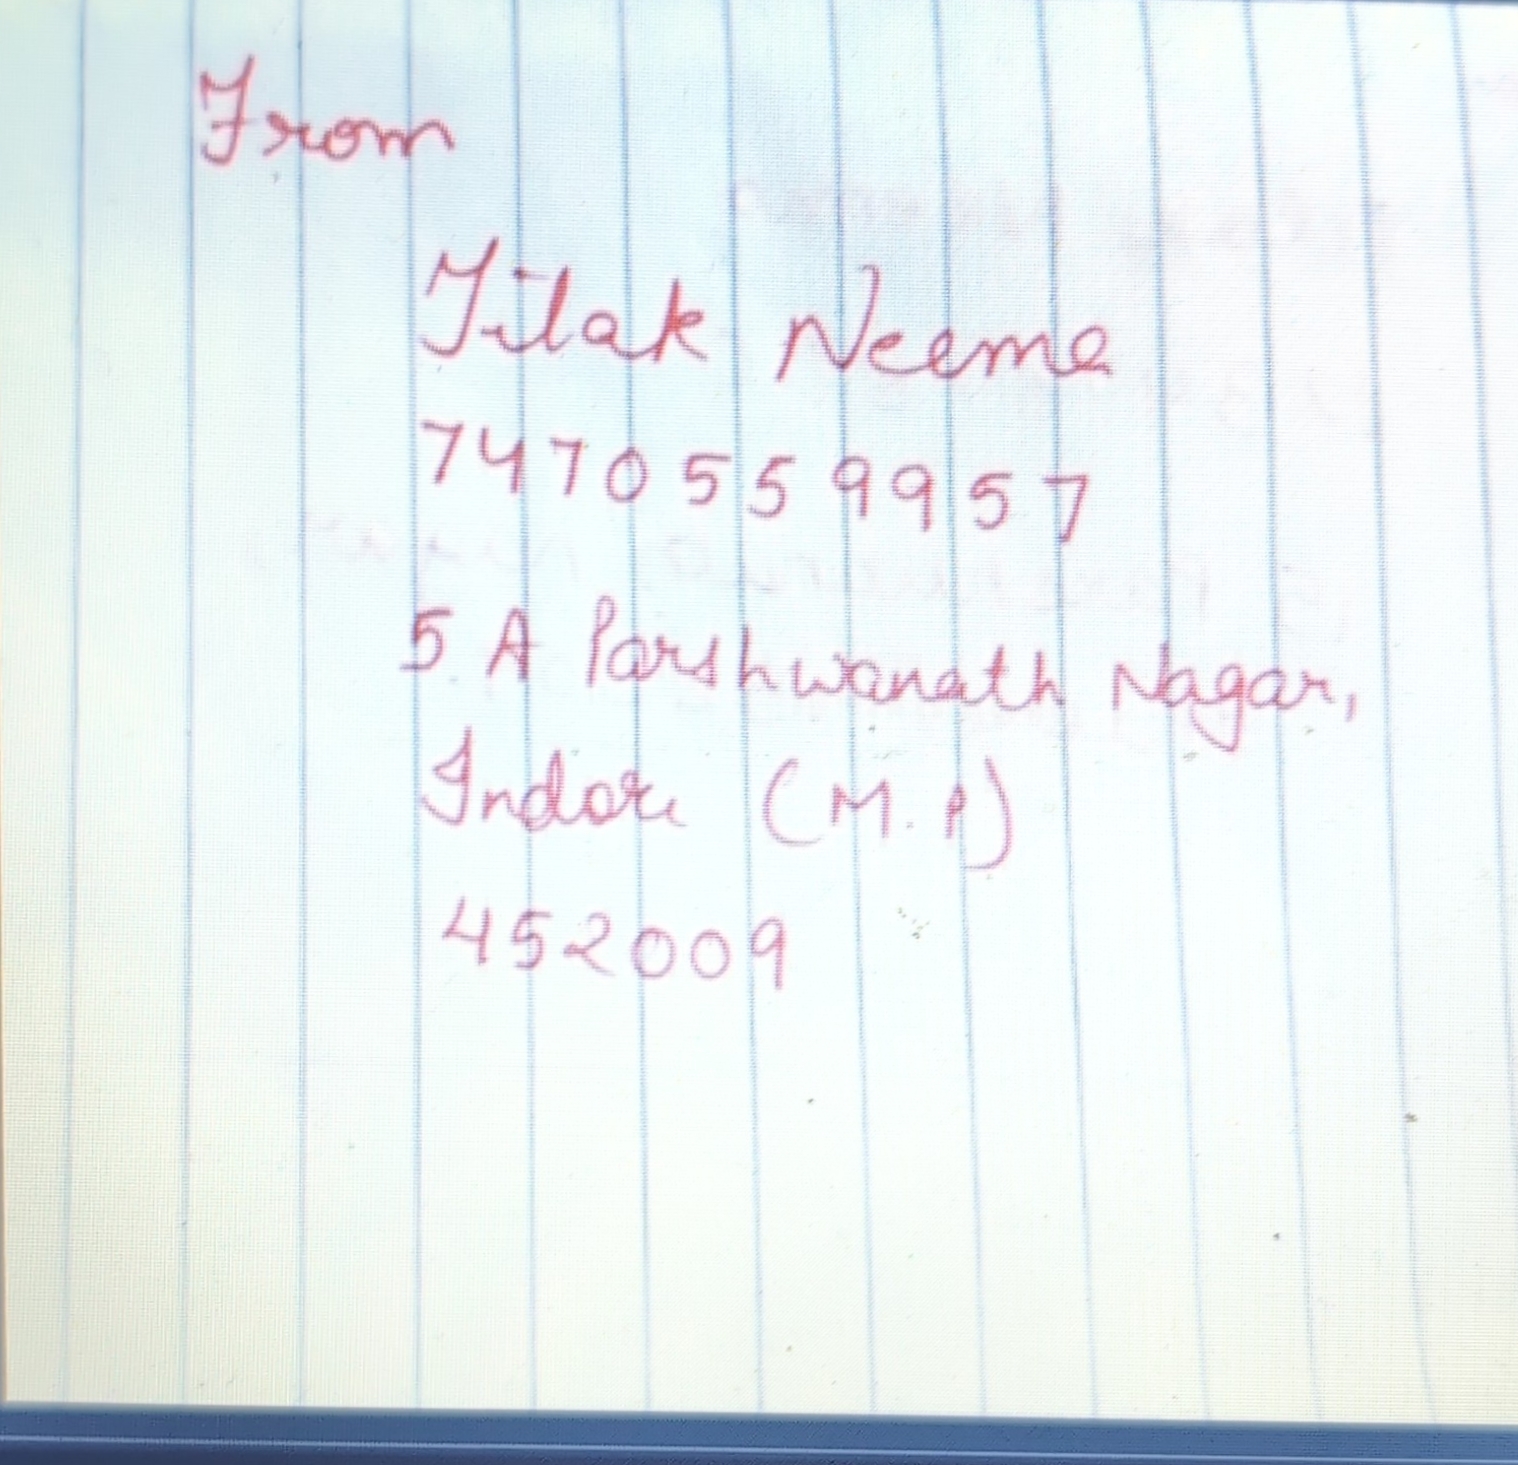 From
Tilak Neema
7470559957
5 A Parshwanath Nagar,
Indore (M.P)
452009